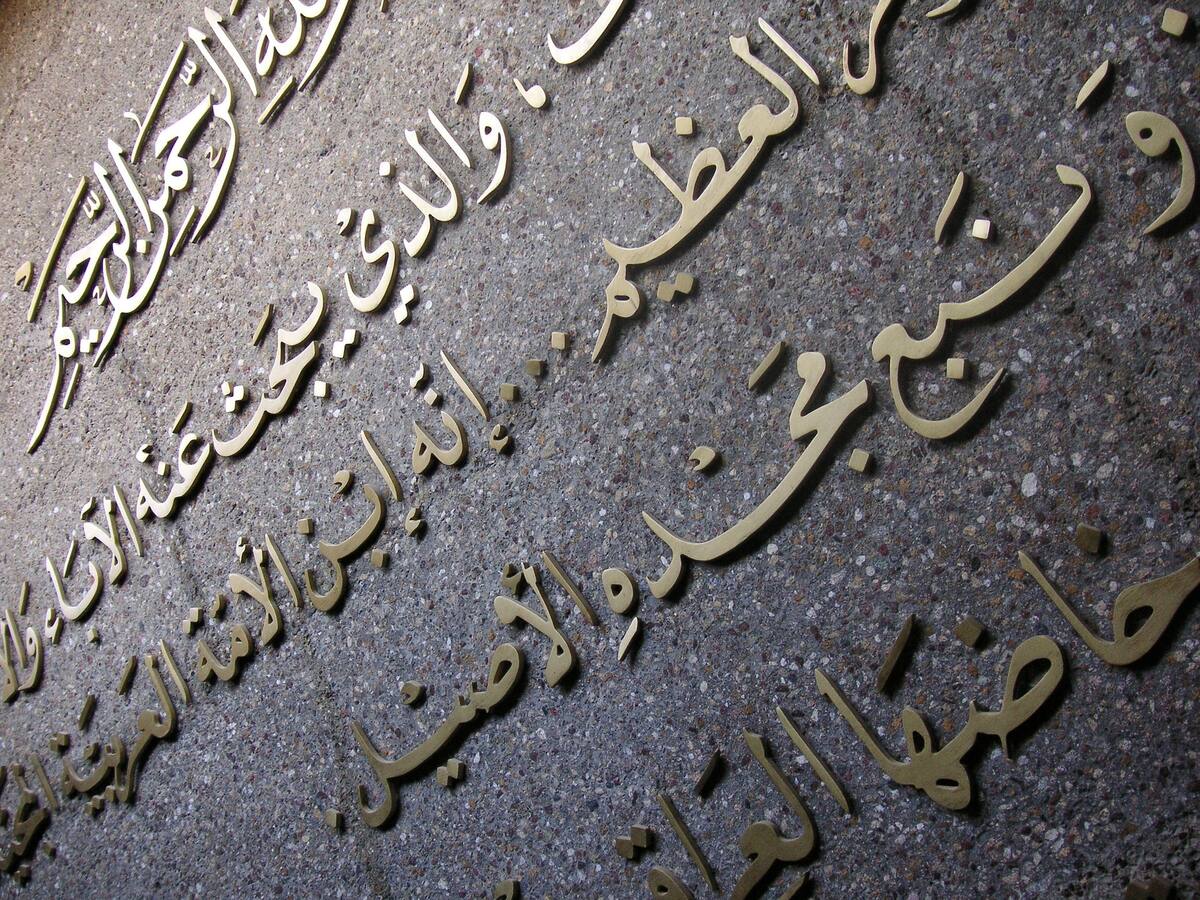 الله الرَّحمنِ الرَّحيم
، وَالذيْ يبحَث عَنْه الآبَاء
العظيم .. إنّه إبْن الأمَّة العَربيَّة
و نَبع مجْدهِ الأصيْل .
حاضنهَا